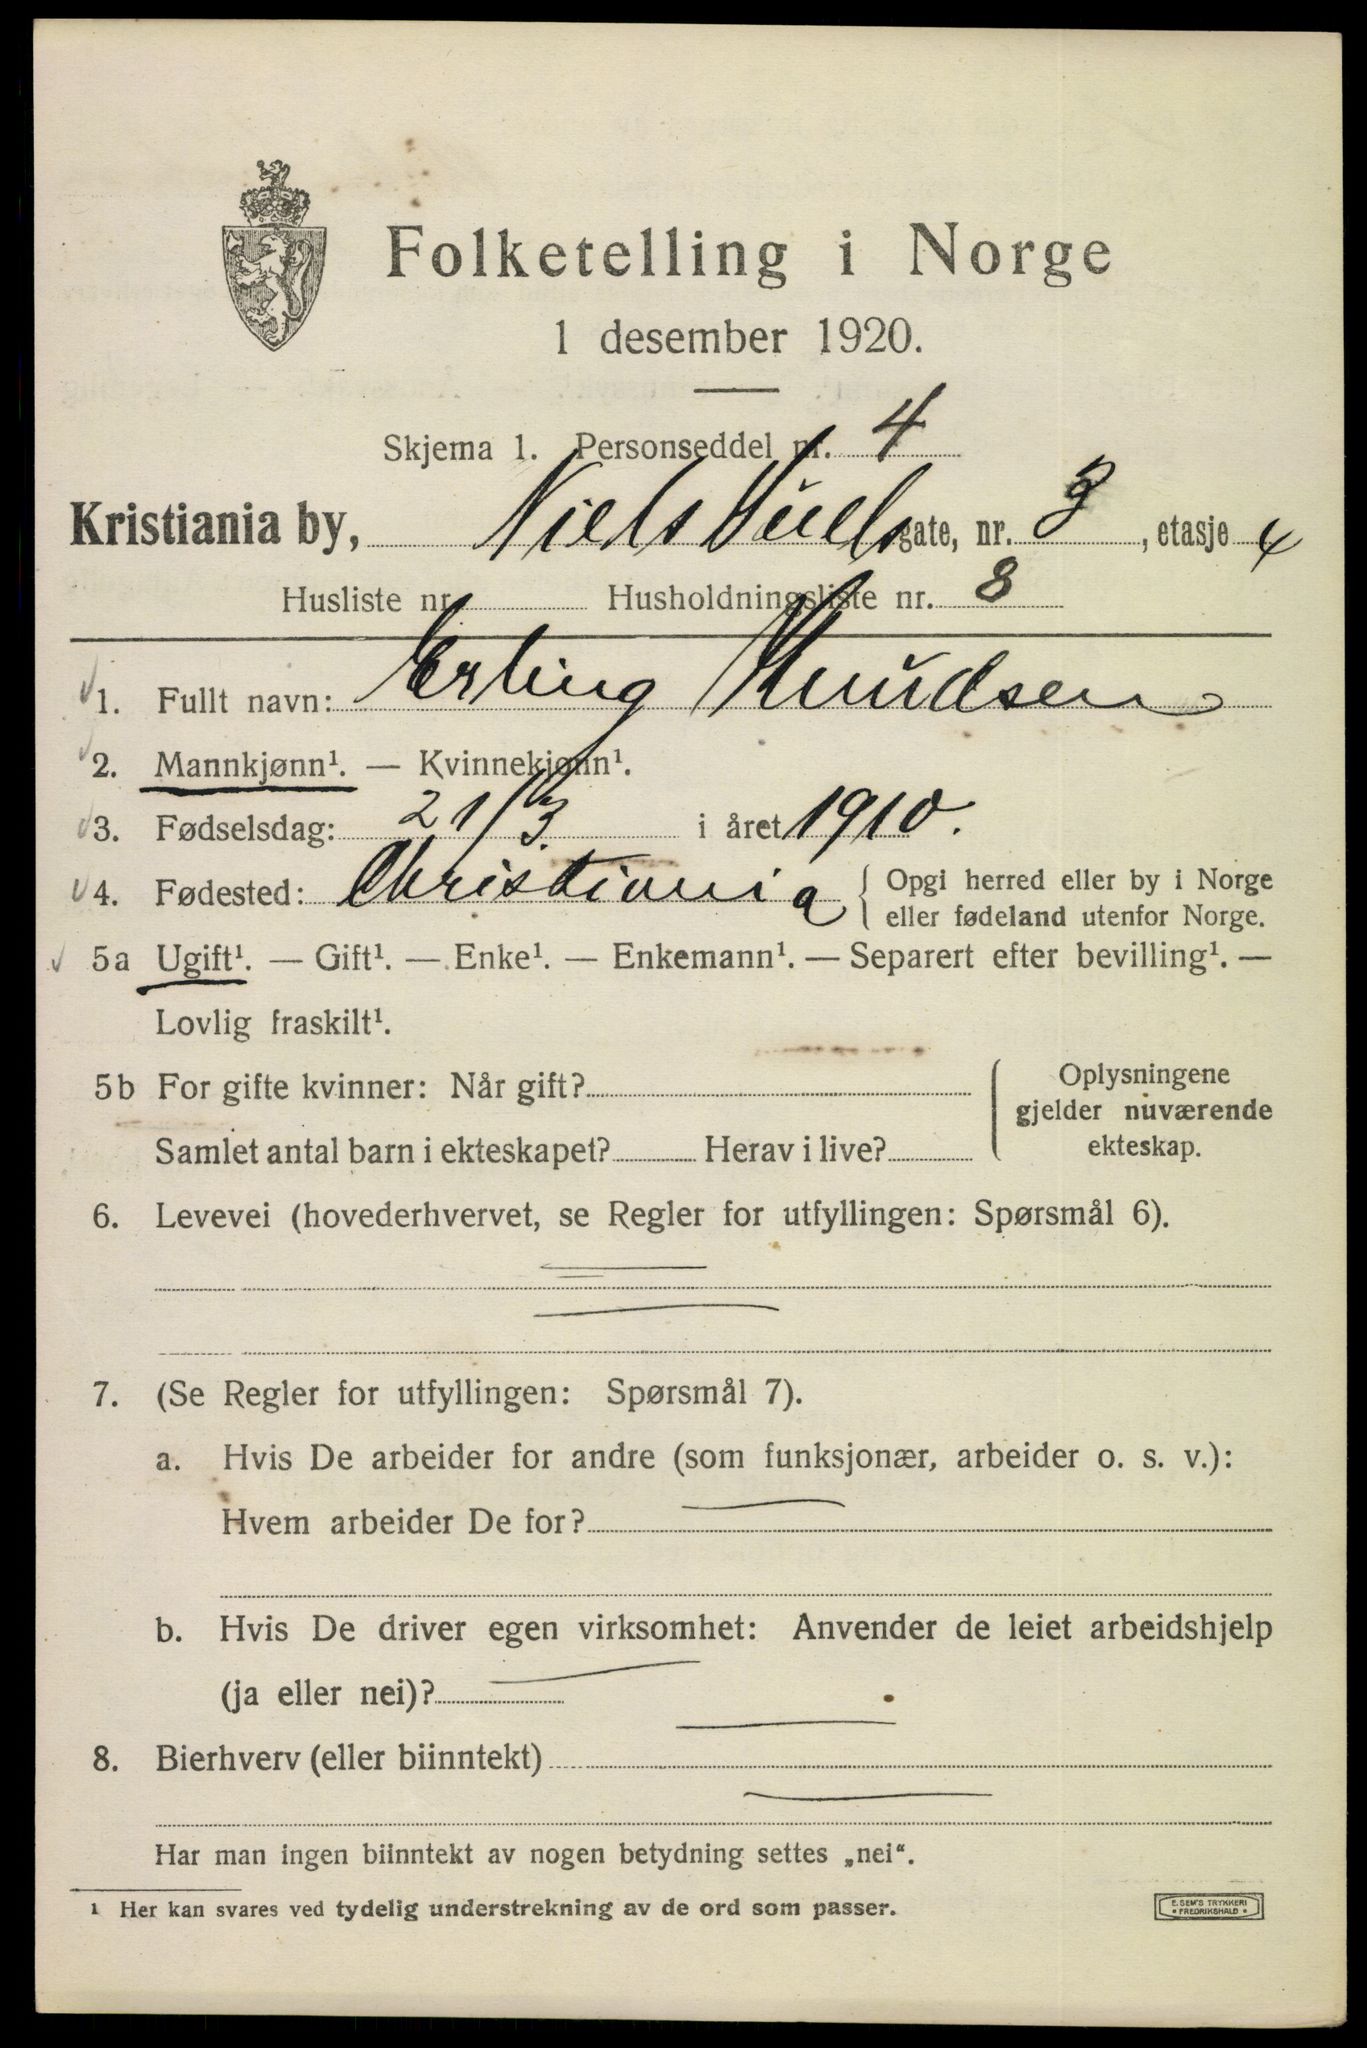 Folketelling i Norge
1 desember 1920.
Skjema 1. Personseddel nr. 4
Kristiania by, Niels Juels gate, nr. 3, etasje 4
Husliste nr. Husholdningsliste nr. 8
1. Fullt navn: Erling Knudsen
2. Mannkjønn¹. — Kvinnekjønn¹.
3. Fødselsdag: 21/3 i året 1910.
4. Fødested: Christiania { Opgi herred eller by i Norge
eller fødeland utenfor Norge.
5a Ugift¹. — Gift¹. — Enke¹. — Enkemann¹. — Separert efter bevilling¹. —
Lovlig fraskilt¹.
5b For gifte kvinner: Når gift?
Samlet antal barn i ekteskapet? Herav i live?
Oplysningene
gjelder nuværende
ekteskap.
6. Levevei (hovederhvervet, se Regler for utfyllingen: Spørsmål 6).
7. (Se Regler for utfyllingen: Spørsmål 7).
a. Hvis De arbeider for andre (som funksjonær, arbeider o. s. v.):
Hvem arbeider De for?
b. Hvis De driver egen virksomhet: Anvender de leiet arbeidshjelp
(ja eller nei)?
8. Bierhverv (eller biinntekt)
Har man ingen biinntekt av nogen betydning settes „nei“.
¹ Her kan svares ved tydelig understrekning av de ord som passer.
E. SEM'S TRYKKERI
• FREDRIKSHALD •